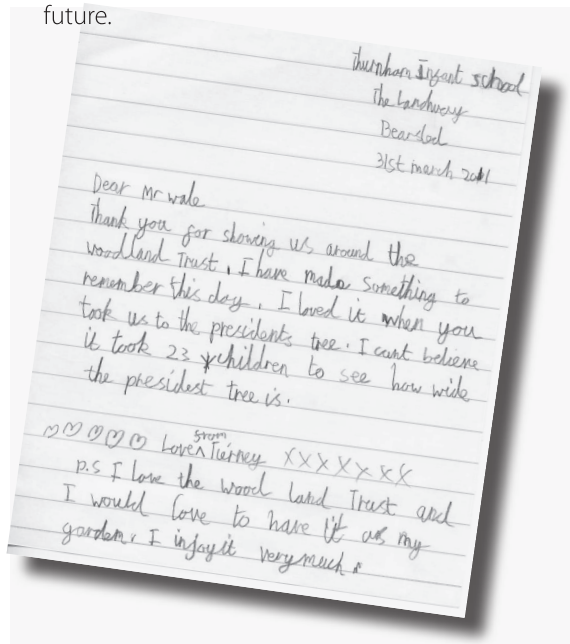 future.
thurnham Infant school
The Landway
Bearsted
31st march 2011
Dear Mr wale
Thank you for showing us around the
woodland Trust, I have made something to
remember this day. I loved it when you
took us to the presidents tree. I cant believe
it took 23 children to see how wide
the presidest tree is.
♡♡♡♡♡ Love from Tierney xxxxxxx
p.s I love the wood land Trust and
I would love to have it as my
garden. I injoy it very much.